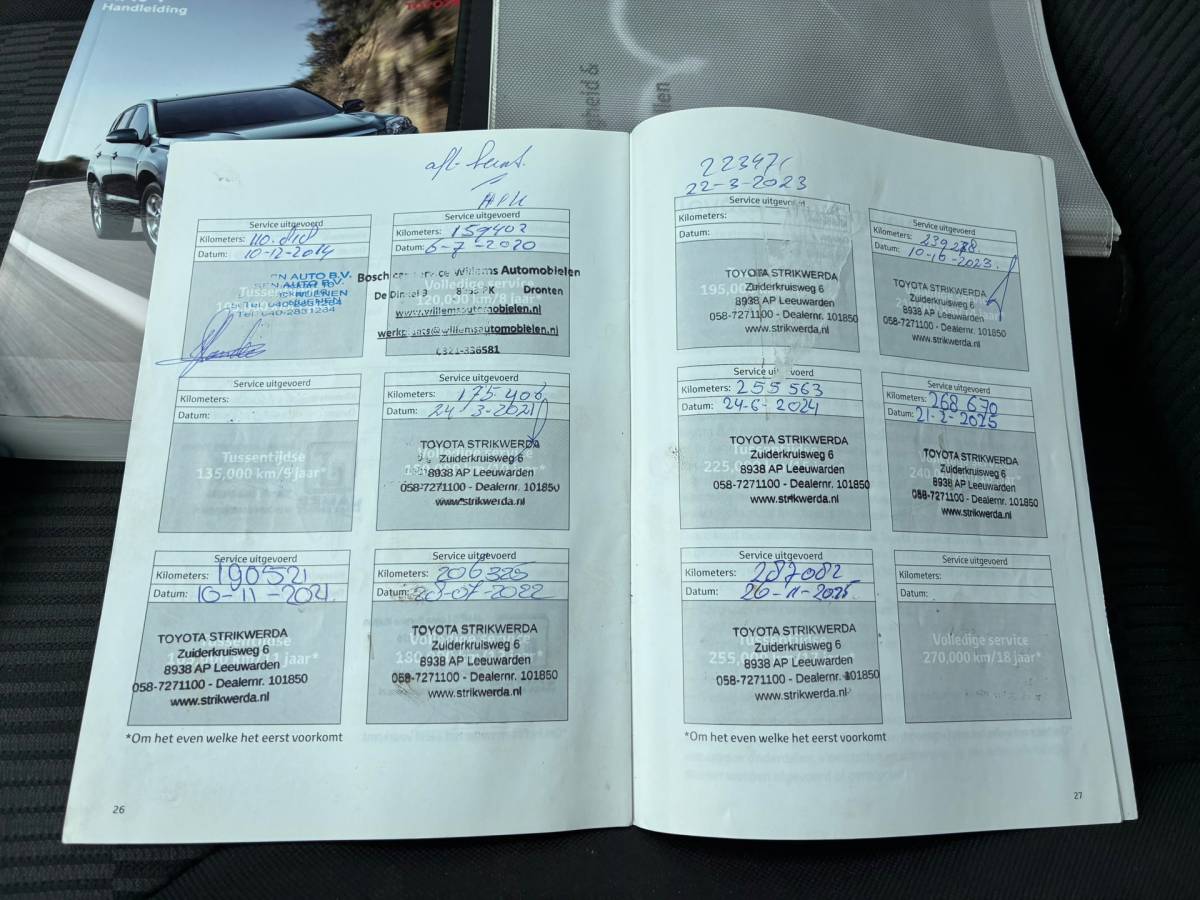 Handleiding
TOYOTA
Service uitgevoerd
Kilometers:
Datum: 10-12-2014
EN AUTO B.V.
Tussentijdse
APK
Service uitgevoerd
Kilometers: 159402
Datum: 6-7-2020
Bosch car service Willems Automobielen
Volledige service
120,000 km/8 jaar*
De Dinsel 9
Dronten
www.willemsautomobielen.nl
werkplaats@willemsautomobielen.nl
0321-336581
Service uitgevoerd
Kilometers:
Datum:
Tussentijdse
135,000 km/9 jaar*
Service uitgevoerd
Kilometers: 175406
Datum: 24-3-2021
TOYOTA STRIKWERDA
Zuiderkruisweg 6
8938 AP Leeuwarden
058-7271100 - Dealernr. 101850
www.strikwerda.nl
Service uitgevoerd
Kilometers: 190521
Datum: 10-11-2021
TOYOTA STRIKWERDA
Zuiderkruisweg 6
8938 AP Leeuwarden
058-7271100 - Dealernr. 101850
www.strikwerda.nl
Service uitgevoerd
Kilometers: 206325
Datum: 28-07-2022
TOYOTA STRIKWERDA
Zuiderkruisweg 6
8938 AP Leeuwarden
058-7271100 - Dealernr. 101850
www.strikwerda.nl
*Om het even welke het eerst voorkomt
26
22-3-2023
Service uitgevoerd
Kilometers:
Datum:
TOYOTA STRIKWERDA
Zuiderkruisweg 6
8938 AP Leeuwarden
058-7271100 - Dealernr. 101850
www.strikwerda.nl
Service uitgevoerd
Kilometers: 239238
Datum: 10-10-2023
TOYOTA STRIKWERDA
Zuiderkruisweg 6
8938 AP Leeuwarden
058-7271100 - Dealernr. 101850
www.strikwerda.nl
Service uitgevoerd
Kilometers: 255563
Datum: 24-6-2024
TOYOTA STRIKWERDA
Zuiderkruisweg 6
8938 AP Leeuwarden
058-7271100 - Dealernr. 101850
www.strikwerda.nl
Service uitgevoerd
Kilometers: 268670
Datum: 21-2-2025
TOYOTA STRIKWERDA
Zuiderkruisweg 6
8938 AP Leeuwarden
058-7271100 - Dealernr. 101850
www.strikwerda.nl
Service uitgevoerd
Kilometers: 287082
Datum: 26-11-2025
TOYOTA STRIKWERDA
Zuiderkruisweg 6
8938 AP Leeuwarden
058-7271100 - Dealernr. 101850
www.strikwerda.nl
Service uitgevoerd
Kilometers:
Datum:
Volledige service
270,000 km/18 jaar*
*Om het even welke het eerst voorkomt
27